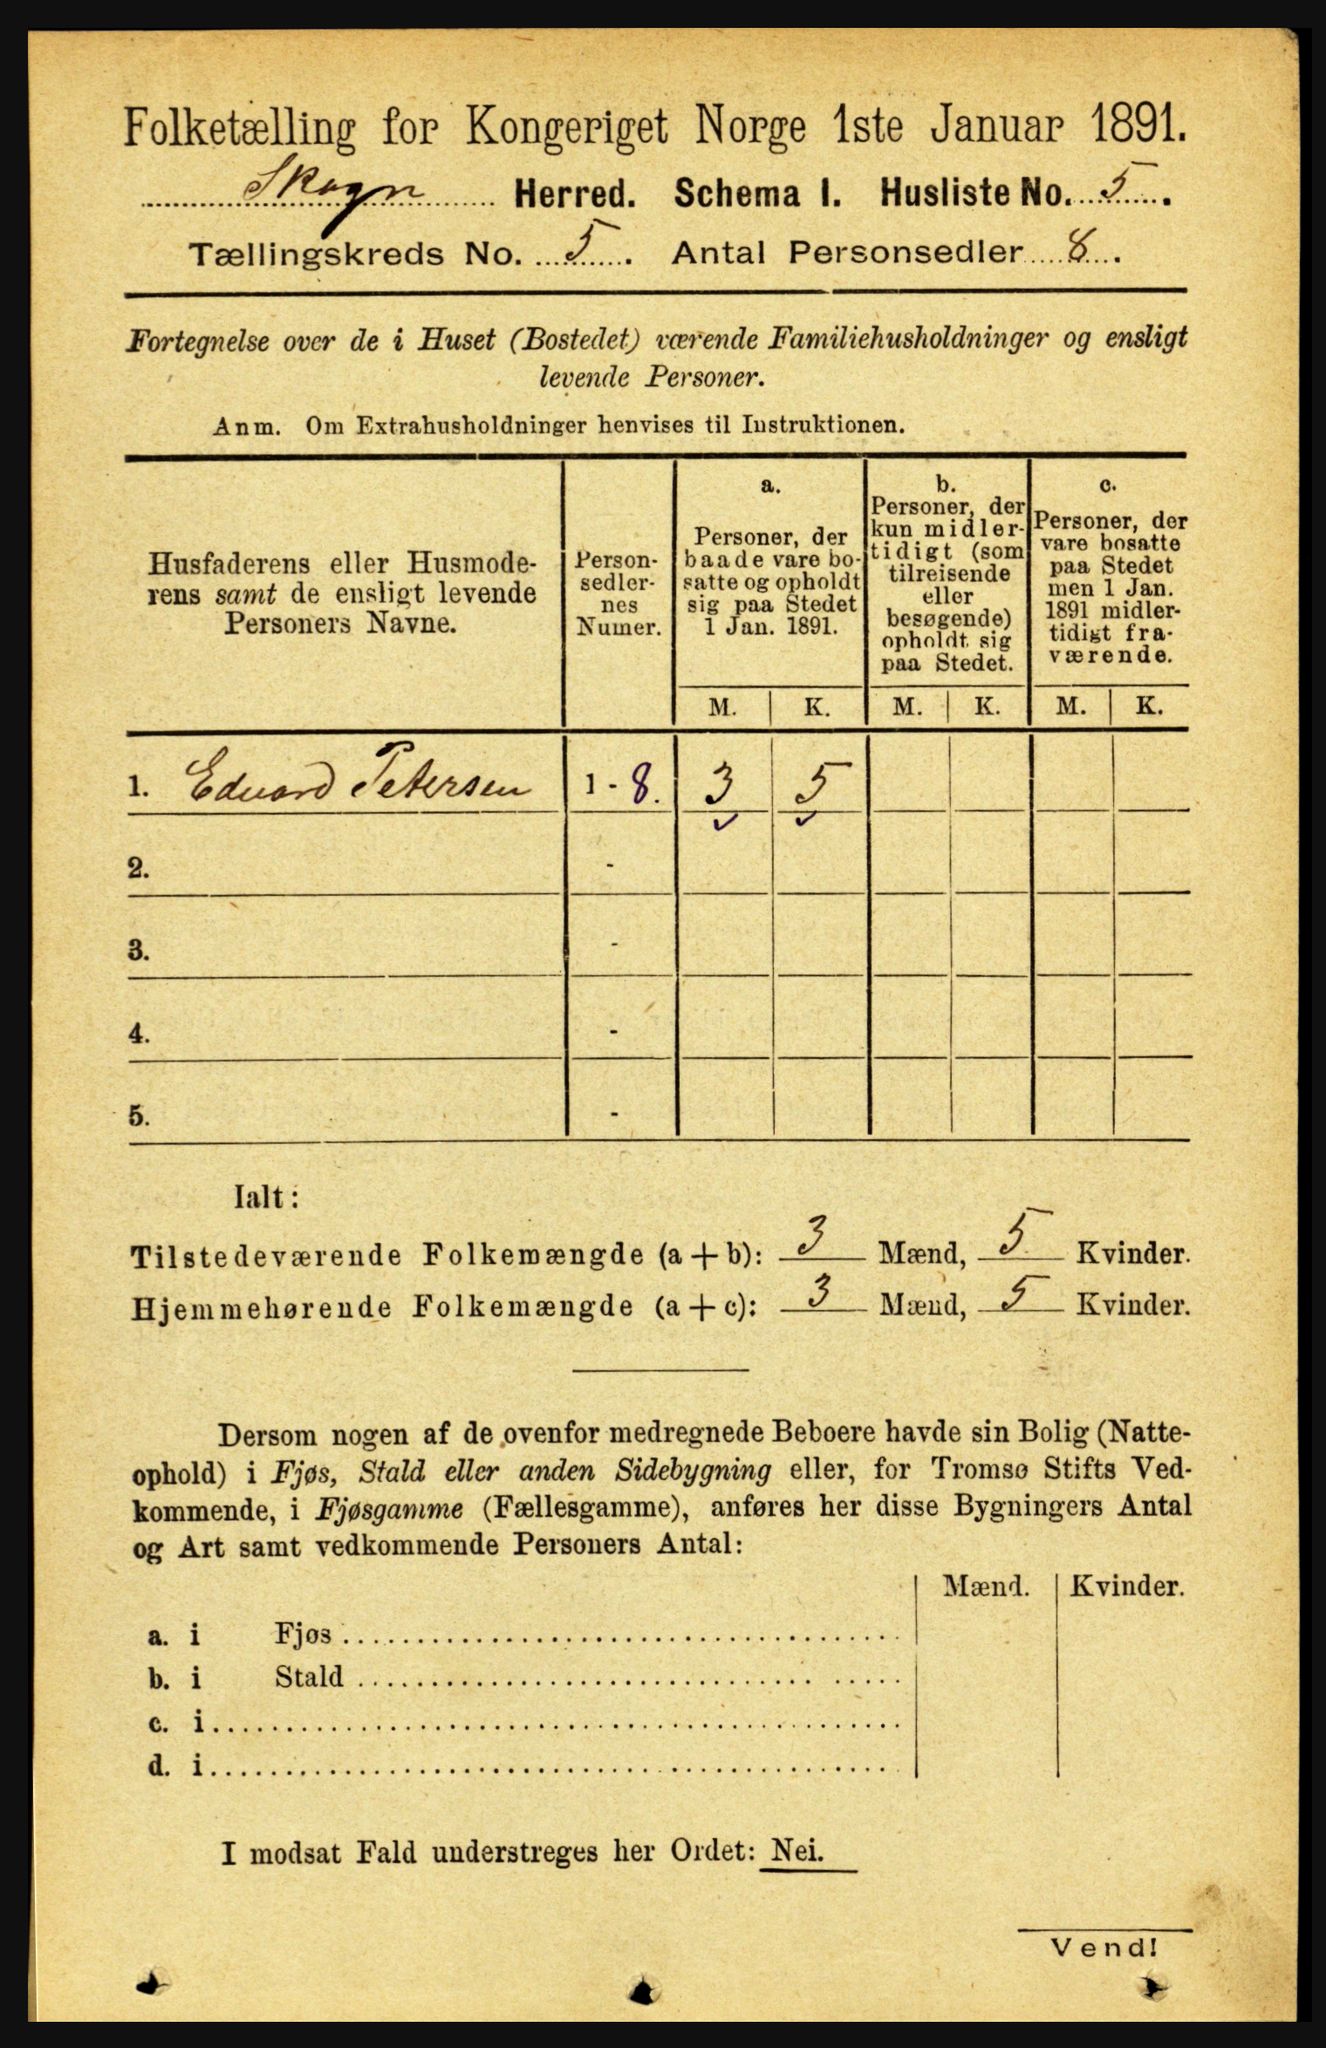 Folketælling for Kongeriget Norge 1ste Januar 1891.
Skogn Herred. Schema I. Husliste No. 5.
Tællingskreds No. 5. Antal Personsedler 8.
Fortegnelse over de i Huset (Bostedet) værende Familiehusholdninger og ensligt
levende Personer.
Anm. Om Extrahusholdninger henvises til Instruktionen.
Husfaderens eller Husmode-
rens samt de ensligt levende
Personers Navne.
Person-
sedler-
nes
Numer.
a.
Personer, der
baade vare bo-
satte og opholdt
sig paa Stedet
1 Jan. 1891.
b.
Personer, der
kun midler-
tidigt (som
tilreisende
eller
besøgende)
opholdt sig
paa Stedet.
c.
Personer, der
vare bosatte
paa Stedet
men 1 Jan.
1891 midler-
tidigt fra-
værende.
M. K. M. K. M. K.
1. Eduard Petersen 1 - 8. 3 5
2. -
3. -
4. -
5. -
Ialt:
Tilstedeværende Folkemængde (a + b): 3 Mænd, 5 Kvinder.
Hjemmehørende Folkemængde (a + c): 3 Mænd, 5 Kvinder.
Dersom nogen af de ovenfor medregnede Beboere havde sin Bolig (Natte-
ophold) i Fjøs, Stald eller anden Sidebygning eller, for Tromsø Stifts Ved-
kommende, i Fjøsgamme (Fællesgamme), anføres her disse Bygningers Antal
og Art samt vedkommende Personers Antal:
Mænd. Kvinder.
a. i Fjøs
b. i Stald
c. i
d. i
I modsat Fald understreges her Ordet: Nei.
Vend!